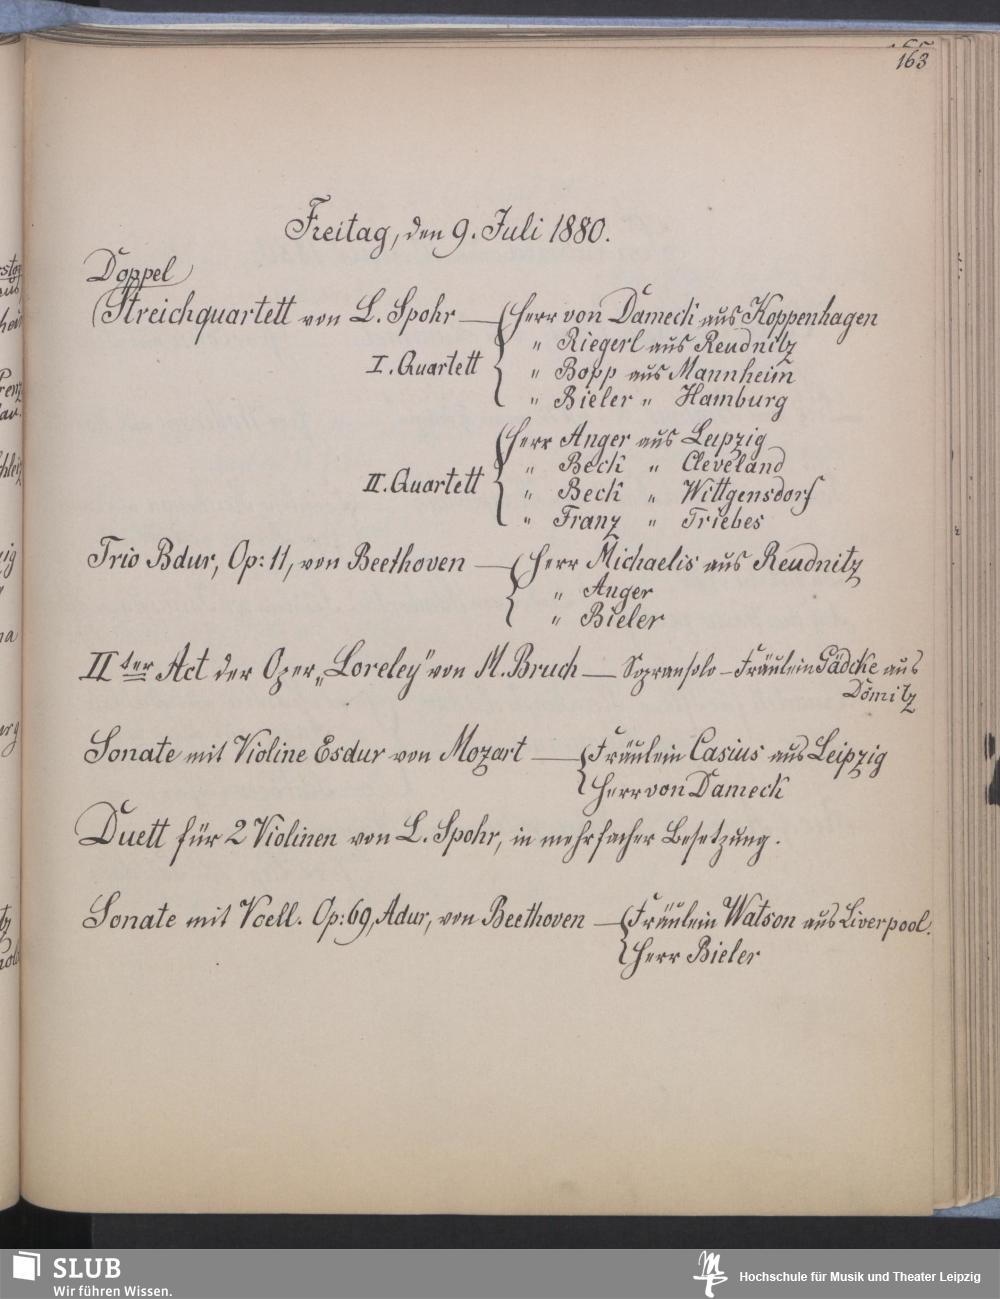 163
Freitag, den 9. Juli 1880.
Doppel
Streichquartett von L. Spohr — Herr von Dameck aus Koppenhagen
" Riegerl aus Reudnitz
I. Quartett " Bopp aus Mannheim
" Bieler " Hamburg
Herr Anger aus Leipzig
" Beck " Cleveland
II. Quartett " Beck " Wittgensdorf
" Franz " Triebes
Trio Bdur, Op: 11, von Beethoven — Herr Michaelis aus Reudnitz
" Anger
" Bieler
IIter Act der Oper „Loreley" von M. Bruch — Sopransolo – Fräulein Gädcke aus
Dömitz
Sonate mit Violine Esdur von Mozart — Fräulein Casius aus Leipzig
Herr von Dameck
Duett für 2 Violinen von L. Spohr, in mehrfacher Besetzung.
Sonate mit Vcell. Op: 69, Adur, von Beethoven — Fräulein Watson aus Liverpool.
Herr Bieler
SLUB
Wir führen Wissen.
Hochschule für Musik und Theater Leipzig